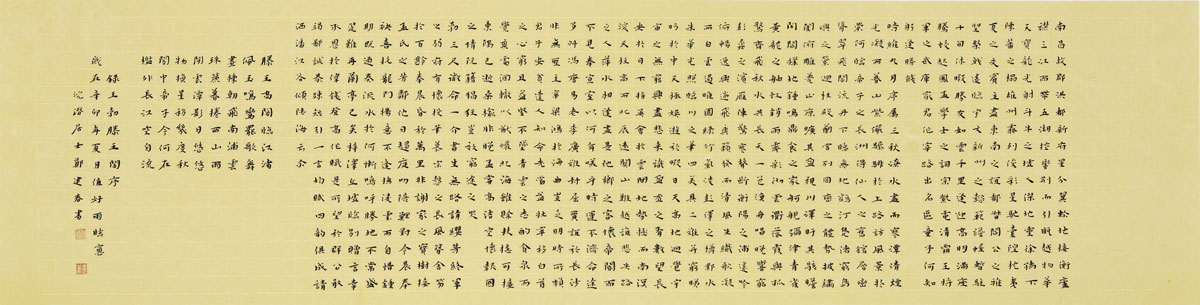 南昌故郡洪都新府星分翼軫地接衡廬
襟三江而帶五湖控蠻荊而引甌越物華
天寶龍光射斗牛之墟人傑地靈徐孺下
陳蕃之榻雄州霧列俊彩星馳臺隍枕夷
夏之交賓主盡東南之美都督閻公之雅
望棨戟遙臨宇文新州之懿範襜帷暫駐
十旬休暇勝友如雲千里逢迎高朋滿座
騰蛟起鳳孟學士之詞宗紫電清霜王將
軍之武庫家君作宰路出名區童子何知
躬逢勝餞
時維九月序屬三秋潦水盡而寒潭清煙
光凝而暮山紫儼驂騑於上路訪風景於
崇阿臨帝子之長洲得仙人之舊館層巒
聳翠丹下臨無地鶴汀鳧渚窮島
嶼之縈迴桂殿蘭宮列岡巒之體勢披繡
闥俯雕甍山原曠其盈視川澤盱其駭矚
閭閻撲地鐘鳴鼎食之家舸艦彌津青雀
黃龍之軸虹銷雨霽彩徹雲衢落霞與孤
鶩齊飛秋水共長天一色漁舟唱晚響窮
彭蠡之濱雁陣驚寒聲斷衡陽之浦遙吟
俯暢逸興遄飛爽籟發而清風生纖歌凝
而白雲遏睢園綠竹氣凌彭澤之樽鄴水
朱華光照臨川之筆四美具二難並窮睇
眄於中天極娛遊於暇日天高地迥覺宇
宙之無窮興盡悲來識盈虛之有數望長
安於日下指吳會於雲間地勢極而南溟
深天柱高而北辰遠關山難越誰悲失路
之人萍水相逢盡是他鄉之客懷帝閽而
不見奉宣室以何年嗚呼時運不濟命途
多舛馮唐易老李廣難封屈賈誼於長沙
非無聖主竄梁鴻於海曲豈乏明時所賴
君子安貧達人知命老當益壯寧移白首
之心窮且益堅不墜青雲之志酌貪泉而
覺爽處涸轍以猶懽北海雖賒扶搖可接
東隅已逝桑榆非晚孟嘗高潔空懷報國
之情阮籍猖狂豈效窮途之哭
勃三尺微命一介書生無路請纓等終軍
之弱冠有懷投筆慕宗愨之長風舍簪笏
於百齡奉晨昏於萬里非謝家之寶樹接
孟氏之芳鄰他日趨庭叨陪鯉對今晨奉
袂喜托龍門楊意不逢撫凌雲而自惜鍾
期既遇奏流水以何慚嗚呼勝地不常盛
筵難再蘭亭已矣梓澤丘墟臨別贈言幸
承恩於偉餞登高作賦是所望於群公敢
竭鄙誠恭疏短引一言均賦四韻俱成請
灑潘江各傾陸海云爾
滕王高閣臨江渚
佩玉鳴鸞罷歌舞
畫棟朝飛南浦雲
珠簾暮捲西山雨
閒雲潭影日悠悠
物換星移幾度秋
閣中帝子今何在
檻外長江空自流
錄王勃滕王閣序
歲在辛卯年夏月值好雨晴窗
居士鄭建春書